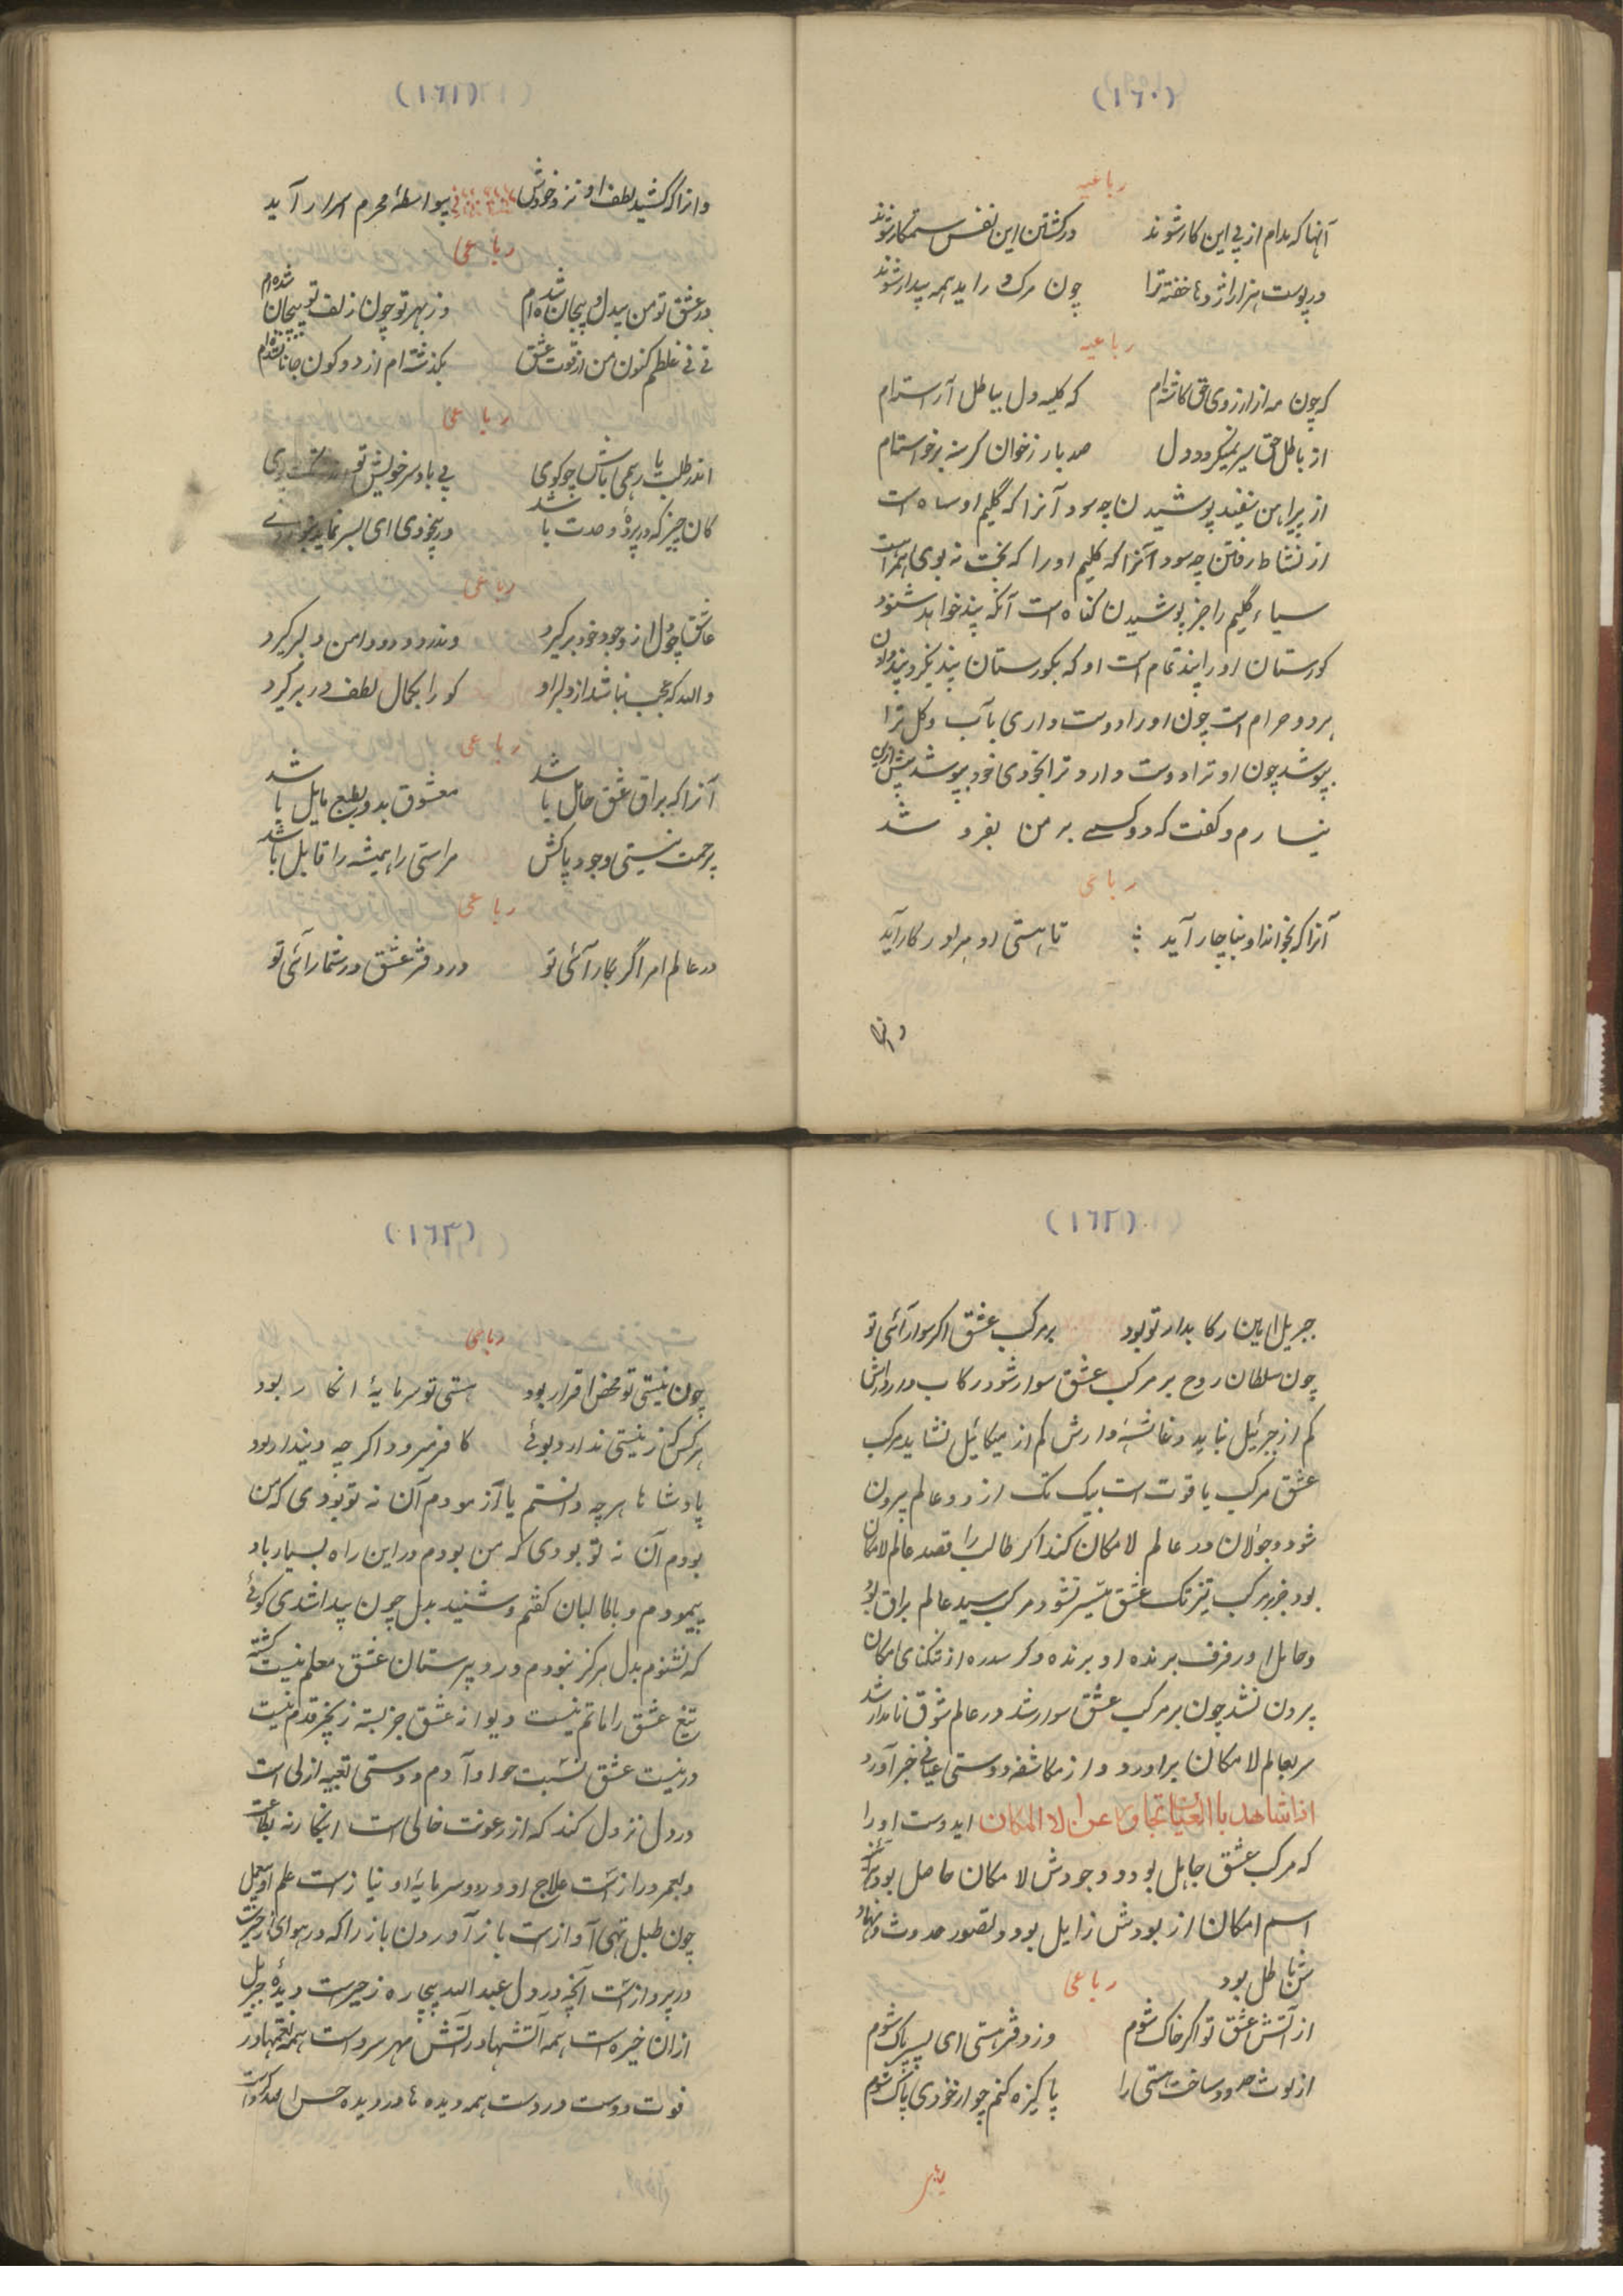 (١٦٠)
رباعیه
آنها که مدام از پی این کار شوند در کشتن این نفس ستمکار شوند
در پوست هزار اژدها خفته ترا چون مرگ در اید همه بیدار شوند
رباعیه
که چون مه از ارزوی حق کاسته‌ام که کلبه دل بباطل آراسته‌ام
از باطل حق سیر نمیگردد دل صد بار ز خوان گرسنه برخواسته‌ام
از پیراهن سفید پوشیدن چه سود آنرا که گلیم او سیاه است
از نشاط رفتن چه سود آنرا که گلیم او را که بخت نه بوی همراه است
سیاه گلیم را جز پوشیدن گناه است آنکه پند خواهد شنود
گورستان او را پند تمام است او که بگورستان پند نگیرد پند دادن
هر دو حرام است چون او را دوست داری بآب و گل ترا
بپوشد چون او ترا دوست دارد ترا بخودی خود بپوشد پیش ازین
نیارم و گفت که دو کسے بر من بفرد شد
رباعی
آنرا که بخواند او بناچار آید تا هستی او هر او در کار آید
وانرا
(١٦١)
وانرا که کشید لطف او نزد خودش بیواسطهٔ محرم اسرار آید
رباعی
در عشق تو من بیدل و بیجان شده‌ام وز بهر تو چون زلف تو پیچان شده‌ام
نی نی غلطم کنون من از قوت عشق بگذشته‌ام از دو کون جانان شده‌ام
رباعی
اندر طلب یا رهمی باش چو گوی بی باد سر خویش تو
کان چیز که در پردهٔ وحدت باشد در بیخودی ای پسر نماید بتو روی
رباعی
عاشق چو دل از وجود خود بر گیرد وندر دو دود دامن دلبر گیرد
والله که عجب نباشد از دلبر او کو را بکمال لطف در بر گیرد
رباعی
آنرا که براق عشق حائل باشد معشوق بدو بطبع مایل باشد
بر حمت نیستی وجود پاکش مر استی را همیشه را قابل باشد
رباعی
در عالم امر اگر بکار آئی تو در دفتر عشق در شمار آئی تو
(١٦٢)
جبریل امین رکابدار تو بود بر مرکب عشق اگر سوار آئی تو
چون سلطان روح بر مرکب عشق سوار شود رکاب دار رواش
کم از جبرئیل نباید و غاشیه دارش کم از میکائیل نشاید مرکب
عشق مرکب با قوت است بیک تک از دو عالم بیرون
شود و جولان در عالم لامکان کند اگر طالب را قصد عالم لامکان
بود جز بر مرکب تیزتک عشق میسر نشود مرکب سید عالم براق بود
و حایل او رفرف برنده او برنده و گر سدره از تنگنای امکان
بیرون نشد چون بر مرکب عشق سوار شد در عالم شوق نامدار شد
سر بعالم لامکان بر اورد و از مکاشفه دوستی عیانی خبر آورد
اذا شاهد با العیان تجاوز عن الا المکان ایدوست او را
که مرکب عشق جاهل بود و وجودش لامکان حاصل بود
اسم امکان از بودش زایل بود و تصور حدوث
ش باطل بود رباعی
از آتش عشق تو اگر خاک شوم وز دفتر هستی ای پسر پاک شوم
از لوث حدود ساخت هستی را پاکیزه کنم چو از خودی پاک شوم
(١٦٣)
رباعی
چون نیستی تو محض اقرار بود هستی تو سرمایهٔ انکار بود
هر کس که ز نیستی ندارد بوئے کافر میرد اگر چه دیندار بود
پادشاها هر چه دانستم یا آزمودم آن نه تو بودی که من
بودم آن نه تو بودی که من بودم در این راه بسیار باد
پیمودم و با طالبان گفتم و شنید بدل چون پیدا شدی گوئے
که نشنوم بدل هرگز نبودم در دبیرستان عشق معلم نیست کشته
تیغ عشق را ماتم نیست دیوانه عشق جز بسته زنجیر قدم نیست
در نیست عشق نسبت حوا و آدم دوستی تعبیه ازلی است
در دل نزول کند که از رعونت خالی است اینجا نه بطاعت
و بعمر دراز است علاج او درد و سرمایه او نیاز است علم او بعمل
چون طبل تهی آواز است باز آوردن باز را که در هوای
در پرواز است آنچه در دل عبد الله بیچاره ز حیرت دیدهٔ جبریل
از آن خیره است همه آتشها در آتش مهر سرد است همه نعمتها در
فوت دوست درد است همه دیده‌ها در دیده